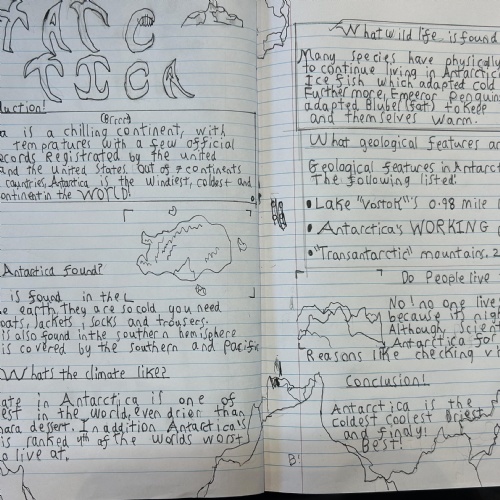 TATC
TICA
duction!
(Brrrr)
a is a chilling continent, with
tempratures with a few official
ecords Registrated by the united
and the United States. Out of 7 continents
countries, Antartica is the windiest, coldest and
continent in the WORLD!
Antarctica found?
is found in the
he earth. They are so cold you need
oats, Jackets, Socks and trousers.
is also found in the southern hemisphere
is covered by the southern and pacific
Whats the climate like?
ate in Antarctica is one of
est in the world, even drier than
hara dessert. In addition Antartica's
is ranked 4th of the worlds worst
o live at.
What wild life is found
Many species have physically
to continue living in Antarctic
Ice fish which adapted cold
Furthermore, Emperor Penguins
adapted Bluber (fat) to keep
and themselves warm.
What geological features ar
Geological features in Antarct
The following listed:
• Lake "Vostok"'s 0.98 mile
• Antarctica's WORKING
• "Transantarctic" mountains. 2
Do People live
No! no one live
because its nigh
Although, Scien
Antarctica for
Reasons like checking v
Conclusion!
Antarctica is the
coldest coolest Driest
and finaly!
Best!
B!